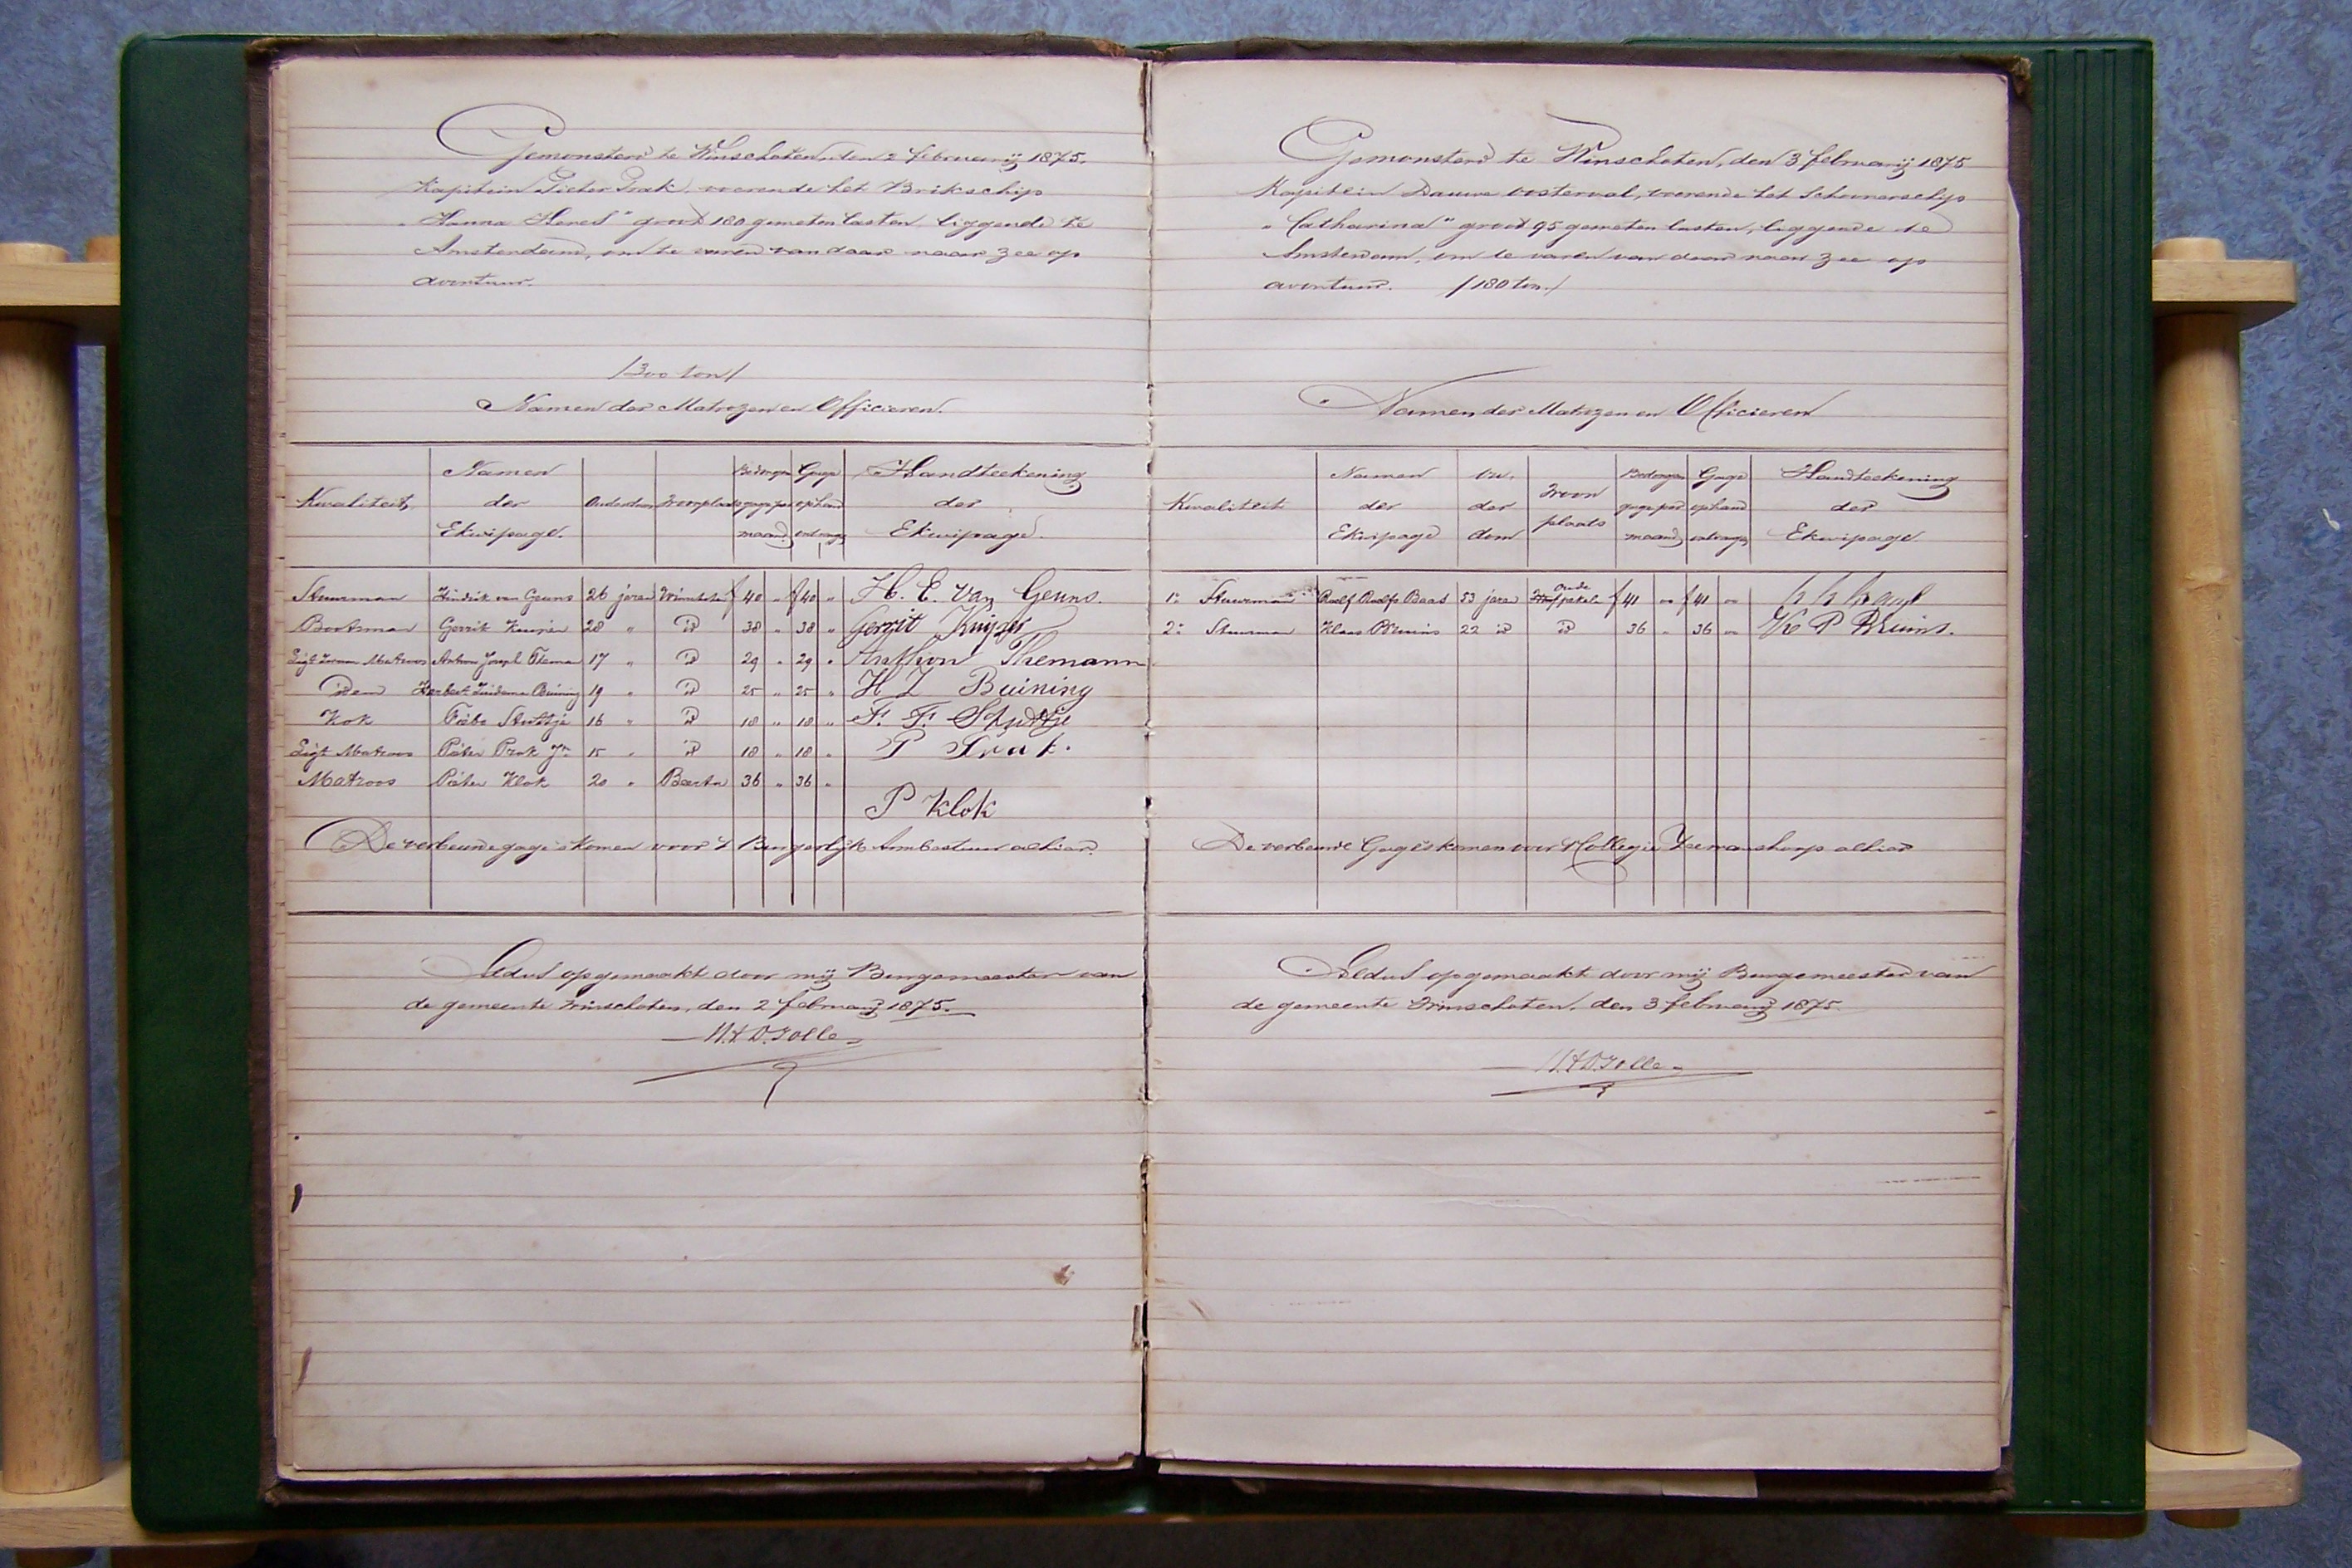 Gemonsterd te Winschoten, den 2 februarij 1875.
Kapitein Pieter Prak, voerende het Brikschip
"Hanna Heres" groot 180 gemeten lasten liggende te
Amsterdam, om te varen van daar naar zee op
avontuur.
/300 ton/
Namen der Matrozen en Officieren.
Kwaliteit Namen der Ekwipage. Ouderdom Woonplaats Bedongen gage per maand Gage op hand ontvangen Handteekening der Ekwipage.
Stuurman Hindrik van Geuns 26 jaren Winschoten f 40 " f 40 " H. E. van Geuns.
Bootsman Gerrit Kuiper 28 " id 38 " 38 " Gerrit Kuiper
Ligt Matroos Anthon Joseph Thema 17 " id 29 " 29 " Anthon Themann
Idem Herbert Tiddema Buining 19 " id 25 " 25 " H T Buining
Kok Fräbo Stuttje 16 " id 18 " 18 " F. F. Stuttje
Ligt Matroos Pieter Prak Jr 15 " id 18 " 18 " P Prak.
Matroos Pieter Klok 20 " Beerta 36 " 36 "
P Klok
De verbeurde gages komen voor 't Burgerlijk Armbestuur alhier.
Aldus opgemaakt door mij Burgemeester van
de gemeente Winschoten, den 2 februarij 1875.
Gemonsterd te Winschoten, den 3 februarij 1875
Kapitein Douwe Oosterval, voerende het Schoonerschip
"Catharina" groot 95 gemeten lasten, liggende te
Amsterdam, om te varen van daar naar zee op
avontuur. /180 ton./
Namen der Matrozen en Officieren
Kwaliteit Namen der Ekwipage Ouderdom Woonplaats Bedongen gage per maand Gage op hand ontvangen Handteekening der Ekwipage.
1e Stuurman Roelf Roelfs Baas 53 jaren Oude Pekela f 41 " f 41 "
2e Stuurman Klaas Bruins 22 id id 36 " 36 " K P Bruins.
De verbeurde Gages komen voor 't Collegie Zeemanshoop alhier
Aldus opgemaakt door mij Burgemeester van
de gemeente Winschoten, den 3 februarij 1875.